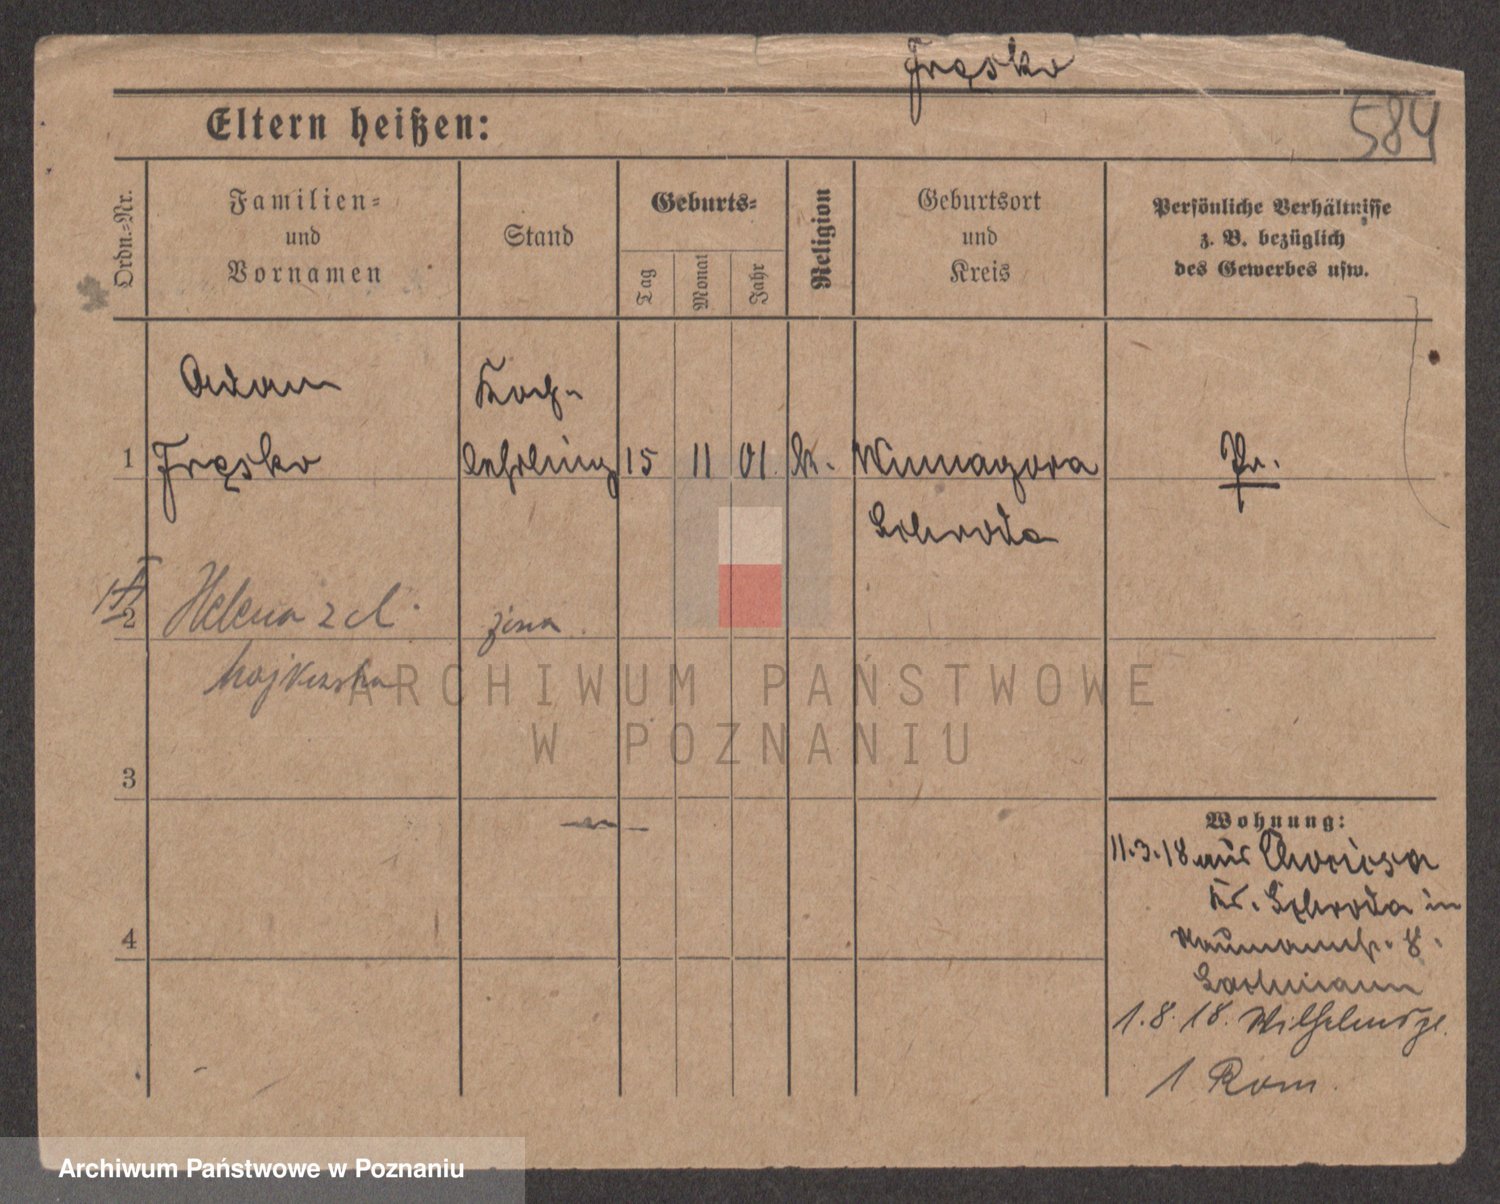 Fręsko
584
Eltern heißen:
Ordn.-Nr.
Familien-
und
Vornamen
Stand
Geburts-
Tag
Monat
Jahr
Religion
Geburtsort
und
Kreis
Persönliche Verhältnisse
z. B. bezüglich
des Gewerbes usw.
Adam
Koch-
1 Fręsko lehrling 15 11 01 k. Winnagora Pr.
Schroda
2 Helena z d. żona
3
4
Wohnung:
11.3.18 aus
Kr. Schroda in
Naumannstr. 8.
1.8.18. Wilhelmspl.
1 Rom.
ARCHIWUM PAŃSTWOWE
W POZNANIU
Archiwum Państwowe w Poznaniu